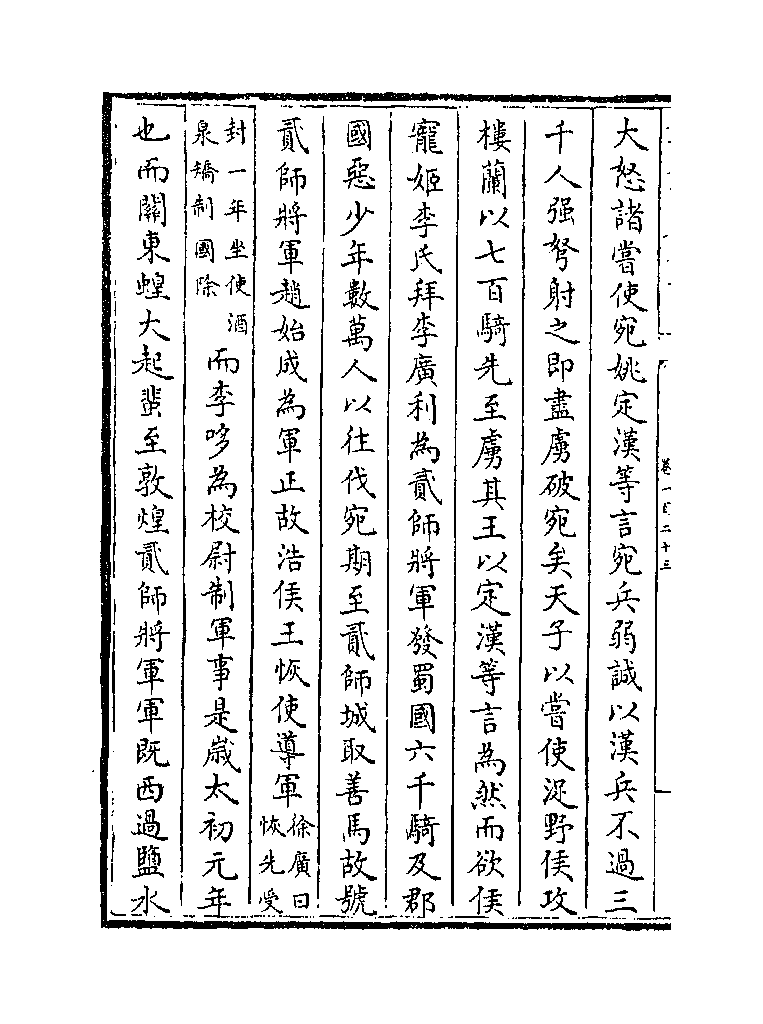 卷一百二十三
大怒諸嘗使宛姚定漢等言宛兵弱誠以漢兵不過三
千人强弩射之即盡虜破宛矣天子以嘗使浞野侯攻
樓蘭以七百騎先至虜其王以定漢等言為然而欲侯
寵姬李氏拜李廣利為貳師將軍發蜀國六千騎及郡
國惡少年數萬人以往伐宛期至貳師城取善馬故號
貳師將軍趙始成為軍正故浩侯王恢使導軍徐廣曰恢先受
封一年坐使酒泉矯制國除而李哆為校尉制軍事是歲太初元年
也而關東蝗大起蜚至敦煌貳師將軍軍既西過鹽水